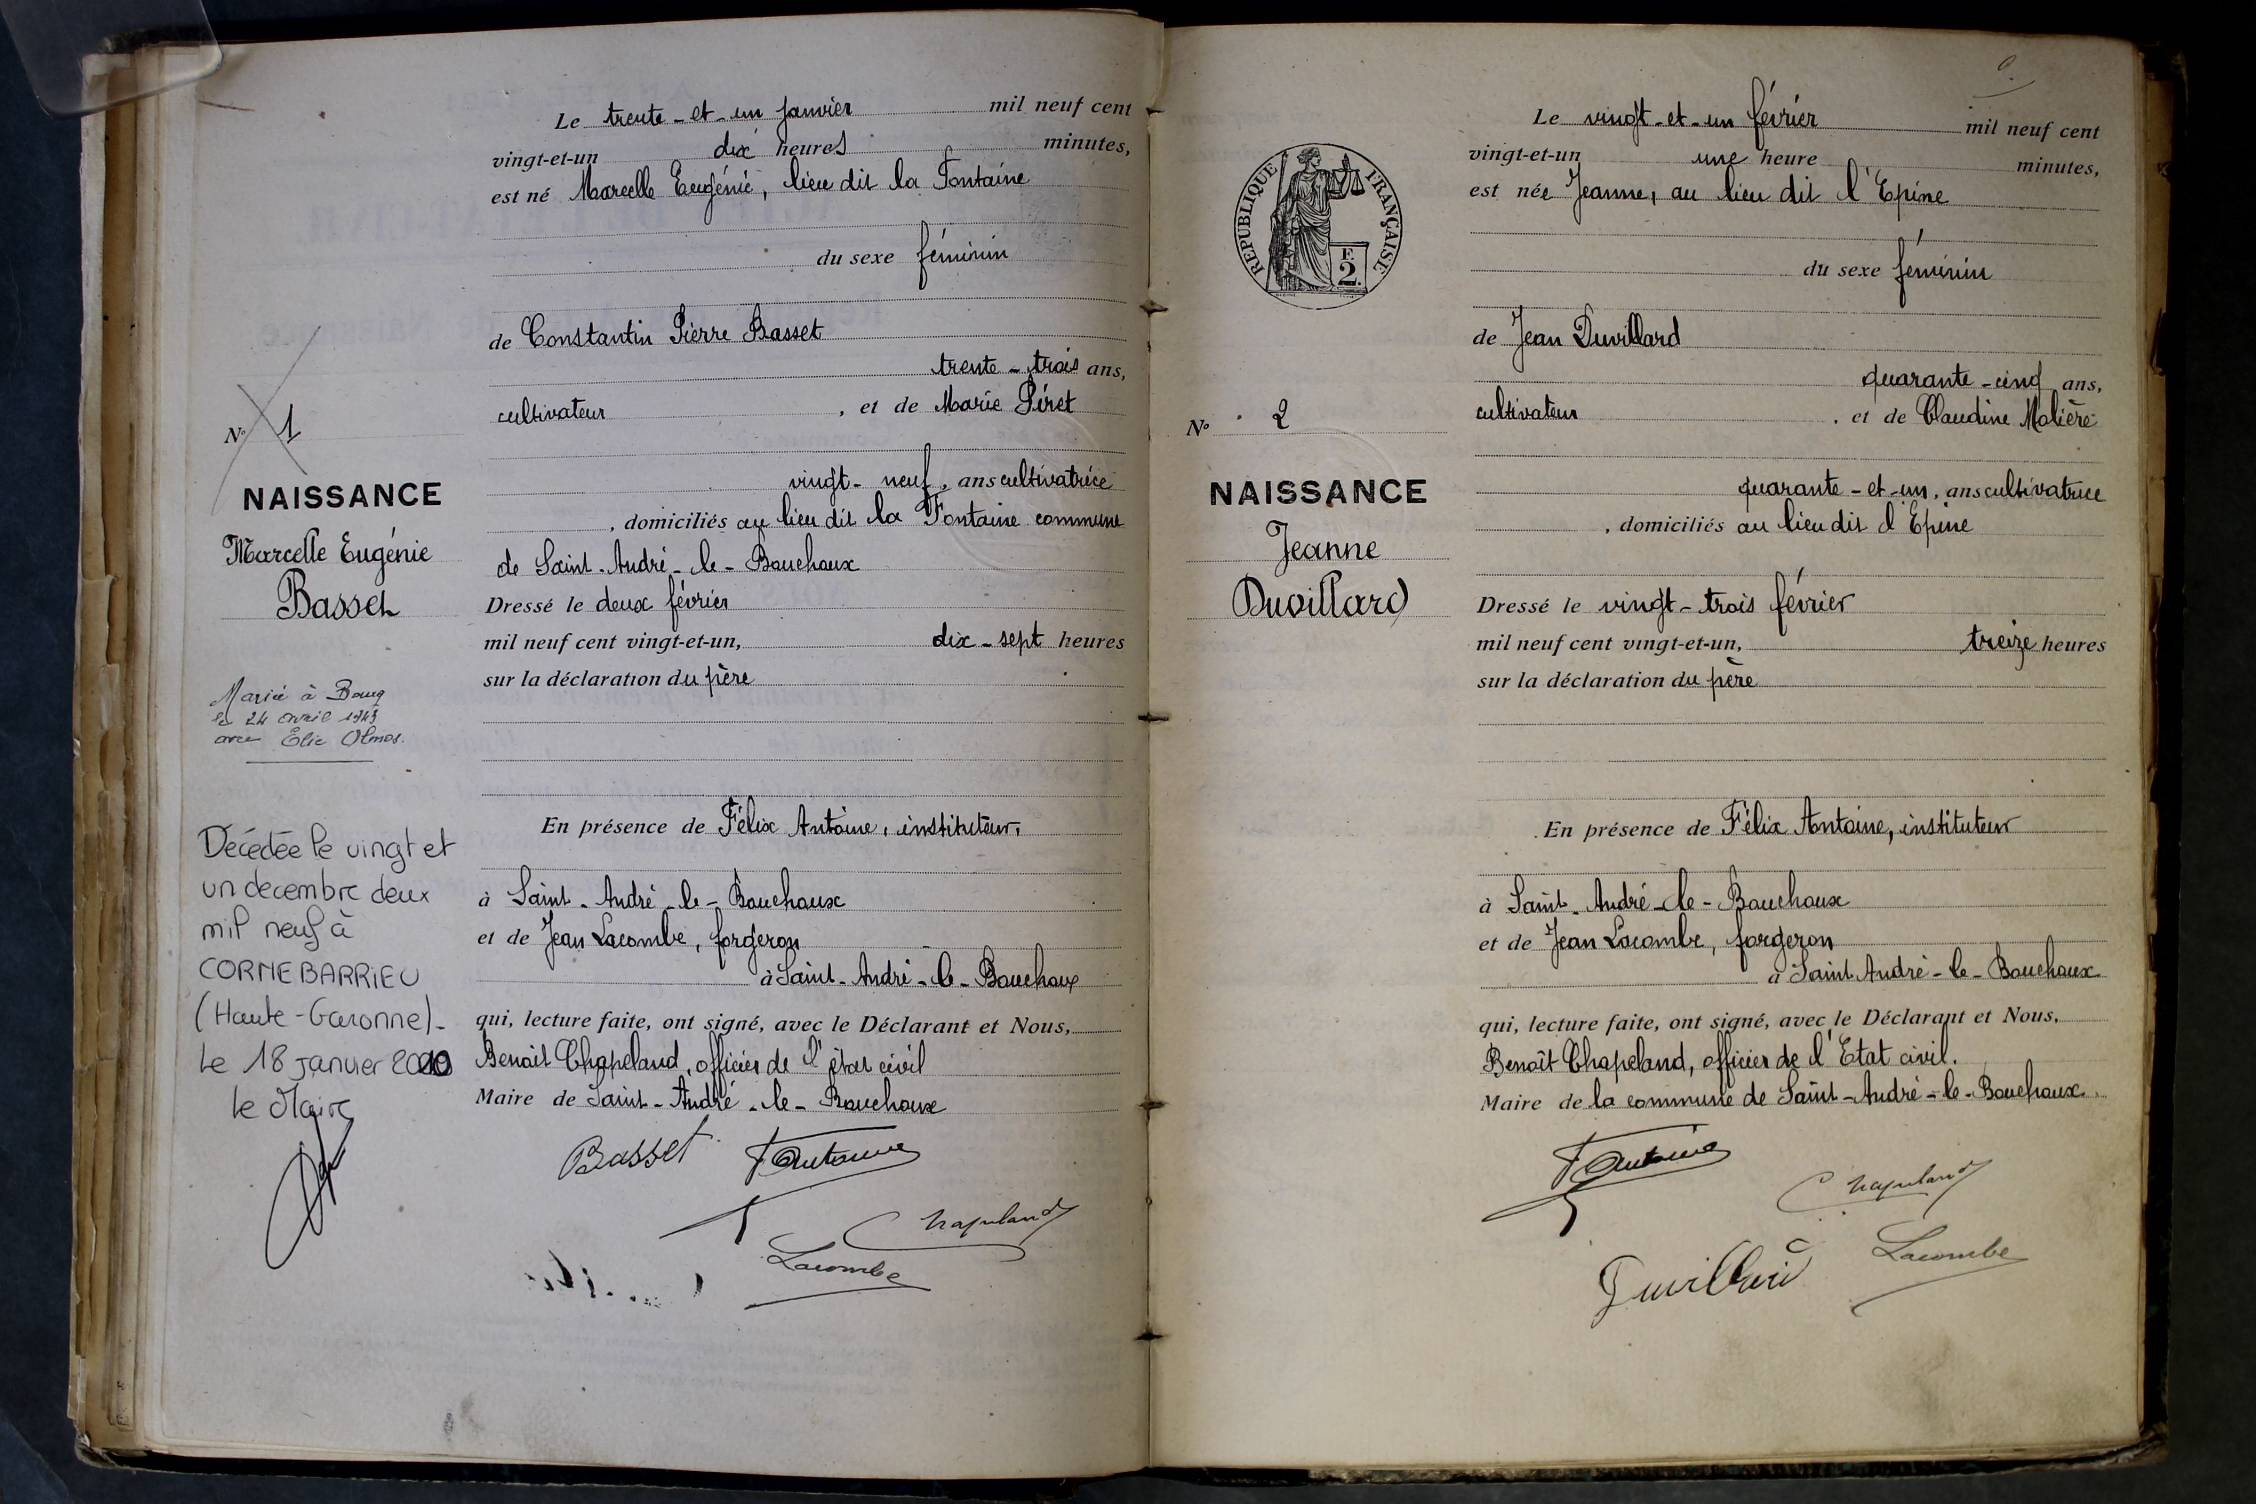 Le trente-et-un janvier mil neuf cent
vingt-et-un dix heures minutes,
est né Marcelle Eugénie, lieu dit la Fontaine
du sexe féminin
de Constantin Pierre Basset
trente-trois ans,
cultivateur, et de Marie Péret
vingt-neuf, ans cultivatrice
, domiciliés au lieu dit la Fontaine commune
de Saint-André-le-Bouchoux
Dressé le deux février
mil neuf cent vingt-et-un, dix-sept heures
sur la déclaration du père
En présence de Félix Antoine, instituteur,
à Saint-André-le-Bouchoux
et de Jean Lacombe, forgeron
à Saint-André-le-Bouchoux
qui, lecture faite, ont signé, avec le Déclarant et Nous,
Benoît Chapeland, officier de l'état civil
Maire de Saint-André-le-Bouchoux
Basset F Antoine
Chapeland
Lacombe
N° 1
NAISSANCE
Marcelle Eugénie
Basset
Mariée à Bourg
le 24 avril 1943
avec Elie Olmos.
Décédée le vingt et
un decembre deux
mil neuf à
CORNEBARRIEU
(Haute-Garonne)-
Le 18 janvier 2010
le Maire
Le vingt-et-un février mil neuf cent
vingt-et-un une heure minutes,
est née Jeanne, au lieu dit l'Epine
du sexe féminin
de Jean Duvillard
quarante-cinq ans,
cultivateur, et de Claudine Molière
quarante-et-un, ans cultivatrice
, domiciliés au lieu dit l'Epine
Dressé le vingt-trois février
mil neuf cent vingt-et-un, treize heures
sur la déclaration du père
En présence de Félix Antoine, instituteur
à Saint-André-le-Bouchoux
et de Jean Lacombe, forgeron
à Saint André-le-Bouchoux
qui, lecture faite, ont signé, avec le Déclarant et Nous,
Benoît Chapeland, officier de l'Etat civil.
Maire de la commune de Saint-André-le-Bouchoux.
F Antoine
Chapeland
Lacombe
Duvillard
RÉPUBLIQUE FRANÇAISE
F.
2.
N° 2
NAISSANCE
Jeanne
Duvillard